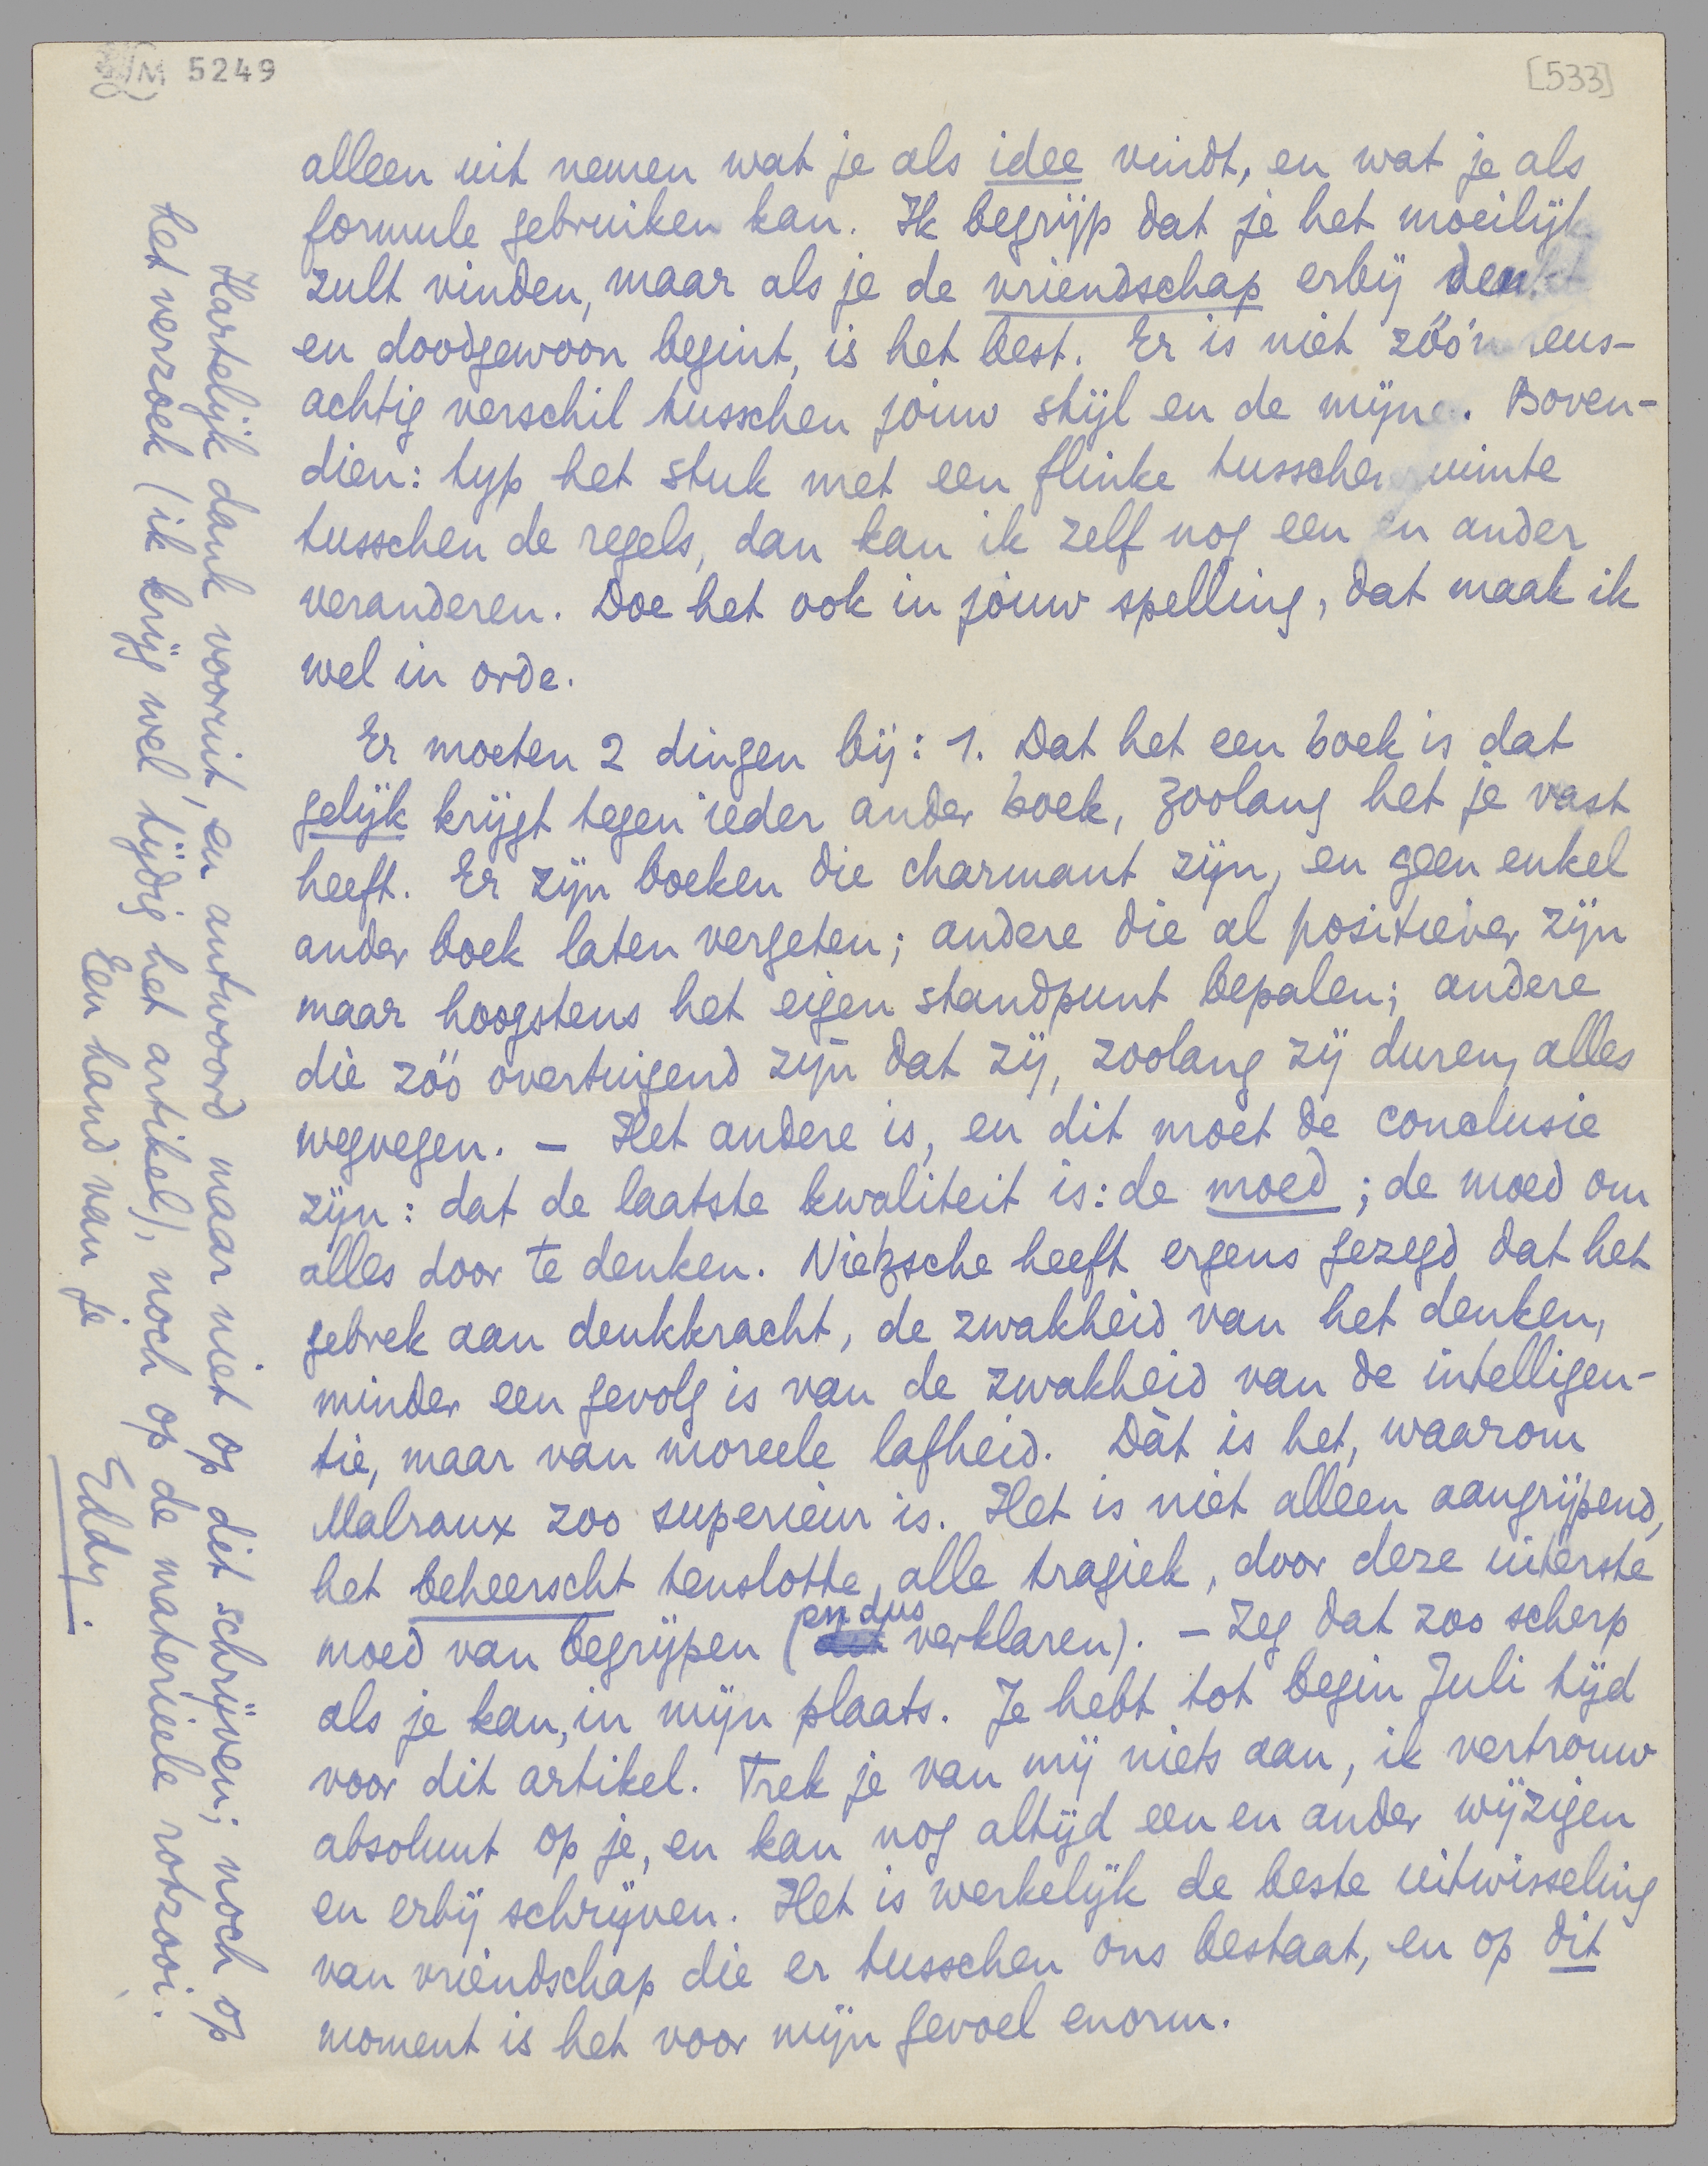 LM 5249
[533]
alleen uit nemen wat je als idee vindt, en wat je als
formule gebruiken kan. Ik begrijp dat je het moeilijk
zult vinden, maar als je de vriendschap erbij denkt
en doodgewoon begint, is het best. Er is niet zóó'n
achtig verschil tusschen jouw stijl en de mijne. Boven-
dien: typ het stuk met een flinke tusschenruimte
tusschen de regels, dan kan ik zelf nog een en ander
veranderen. Doe het ook in jouw spelling, dat maak ik
wel in orde.
Er moeten 2 dingen bij: 1. Dat het een boek is dat
gelijk krijgt tegen ieder ander boek, zoolang het je vast
heeft. Er zijn boeken die charmant zijn, en geen enkel
ander boek laten vergeten; andere die al positiever zijn
maar hoogstens het eigen standpunt bepalen; andere
die zóó overtuigend zijn dat zij, zoolang zij duren, alles
wegvegen. – Het andere is, en dit moet de conclusie
zijn: dat de laatste kwaliteit is: de moed; de moed om
alles door te denken. Nietzsche heeft ergens gezegd dat het
gebrek aan denkkracht, de zwakheid van het denken,
minder een gevolg is van de zwakheid van de intelligen-
tie, maar van moreele lafheid. Dàt is het, waarom
Malraux zoo superieur is. Het is niet alleen aangrijpend,
het beheerscht tenslotte, alle tragiek, door deze uiterste
moed van begrijpen (en dus verklaren). – Zeg dat zoo scherp
als je kan, in mijn plaats. Je hebt tot begin Juli tijd
voor dit artikel. Trek je van mij niets aan, ik vertrouw
absoluut op je, en kan nog altijd een en ander wijzigen
en erbij schrijven. Het is werkelijk de beste uitwisseling
van vriendschap die er tusschen ons bestaat, en op dit
moment is het voor mijn gevoel enorm.
Hartelijk dank vooruit, en antwoord maar niet op dit schrijven; noch op
het verzoek (ik krijg wel tijdig het artikel), noch op de materieele rotzooi.
Een hand van je
Eddy.